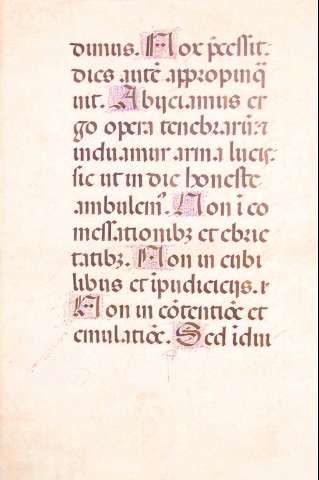 dimus. Nox p̄cessit.
dies autē appropinq̄
uit. Abijciamus er
go opera tenebrarū: ⁊
induamur arma lucis:
sic ut in die honeste
ambulem⁹. Non ī co
messationibꝫ et ebrie
tatibꝫ. Non in cubi
libus et īpudicicijs. ⁊
Non in cōtentiōe et
emulatiōe. Sed īdui